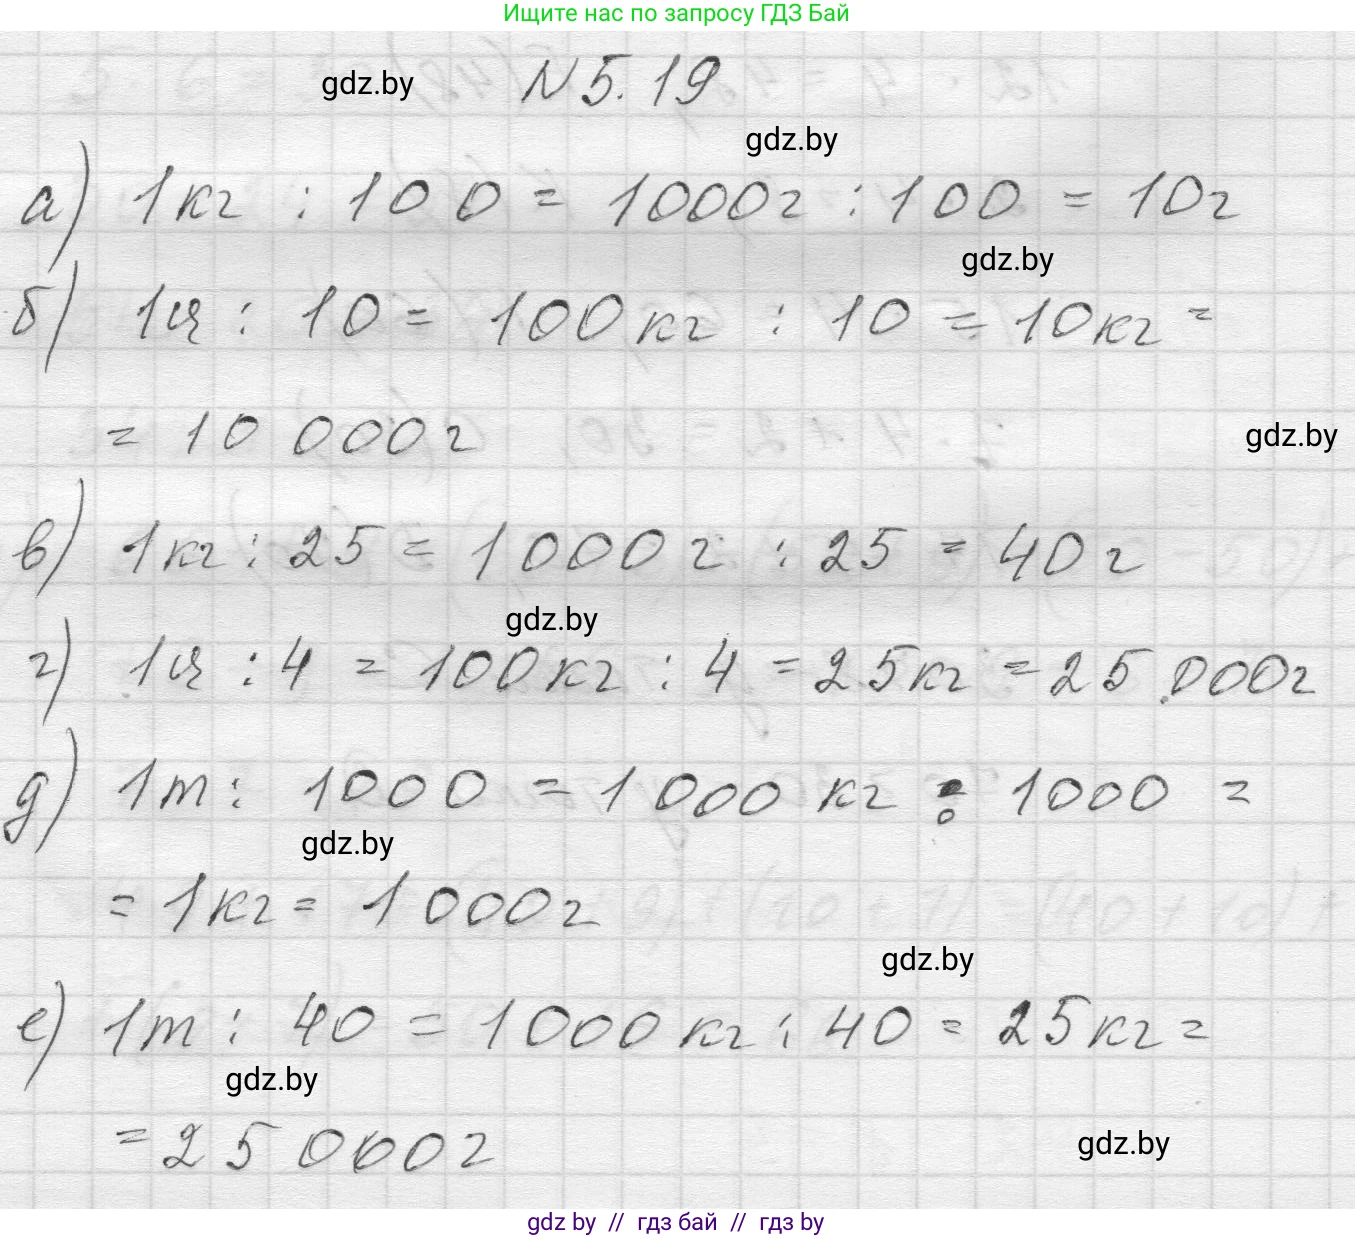 Ищите нас по запросу ГДЗ Бай
gdz.by № 5.19
gdz.by
а) 1кг : 100 = 1000г : 100 = 10г
gdz.by
б) 1ц : 10 = 100кг : 10 = 10кг =
= 10 000г
gdz.by
в) 1кг : 25 = 1000г : 25 = 40г
gdz.by
г) 1ц : 4 = 100кг : 4 = 25кг = 25 000г
д) 1т : 1000 = 1000 кг : 1000 =
gdz.by
= 1кг = 1000г
gdz.by
е) 1т : 40 = 1000кг : 40 = 25кг =
gdz.by
= 25 000г
gdz.by
gdz by // гдз бай // гдз by